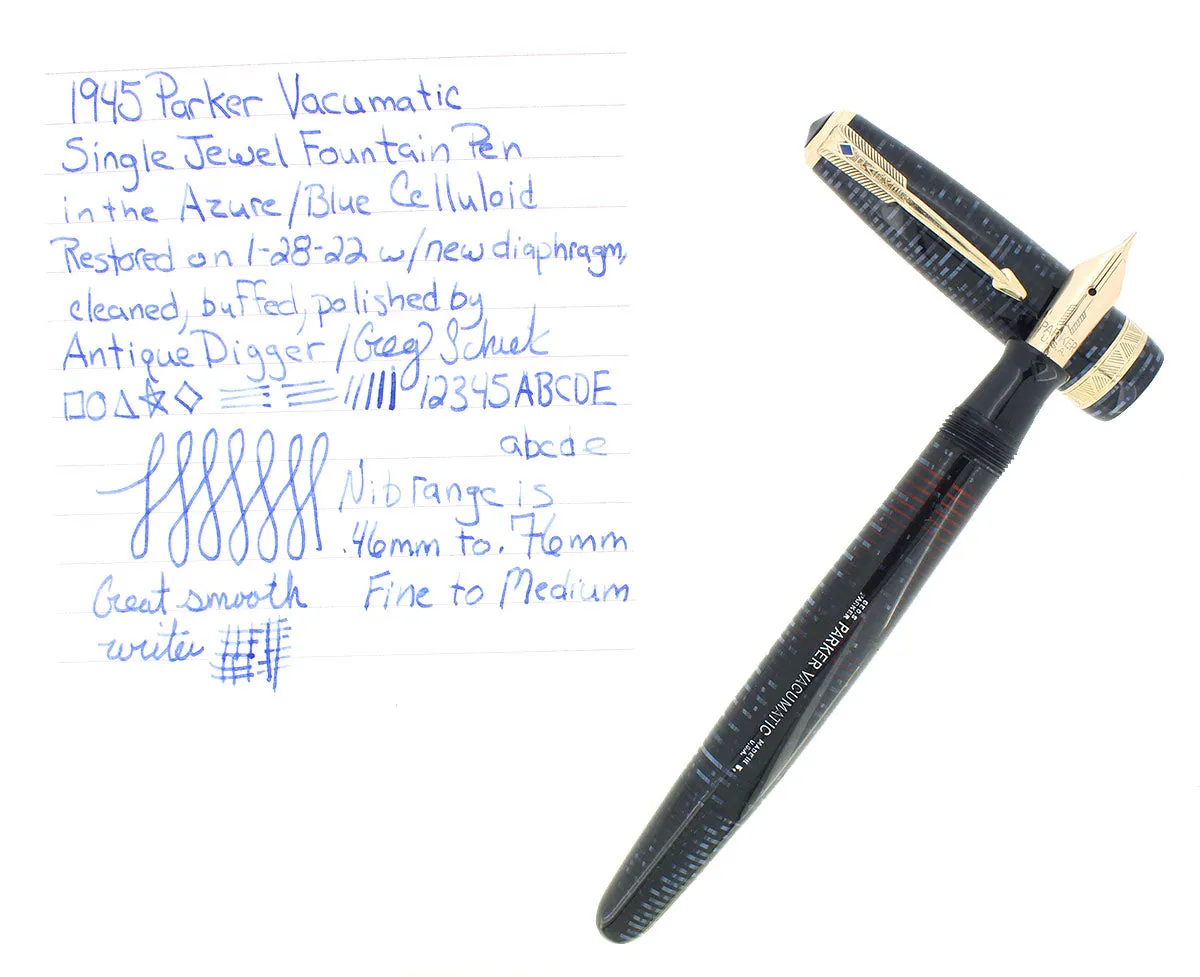 1945 Parker Vacumatic
Single Jewel Fountain Pen
in the Azure/Blue Celluloid
Restored on 1-28-22 w/new diaphragm,
cleaned, buffed, polished by
Antique Digger/Greg
12345ABCDE
abcde
Nib range is
.46mm to .76mm
Great smooth
Fine to Medium
writer
PARKER
GEO.S.
PARKER
PARKER VACUMATIC
MADE IN
U.S.A.